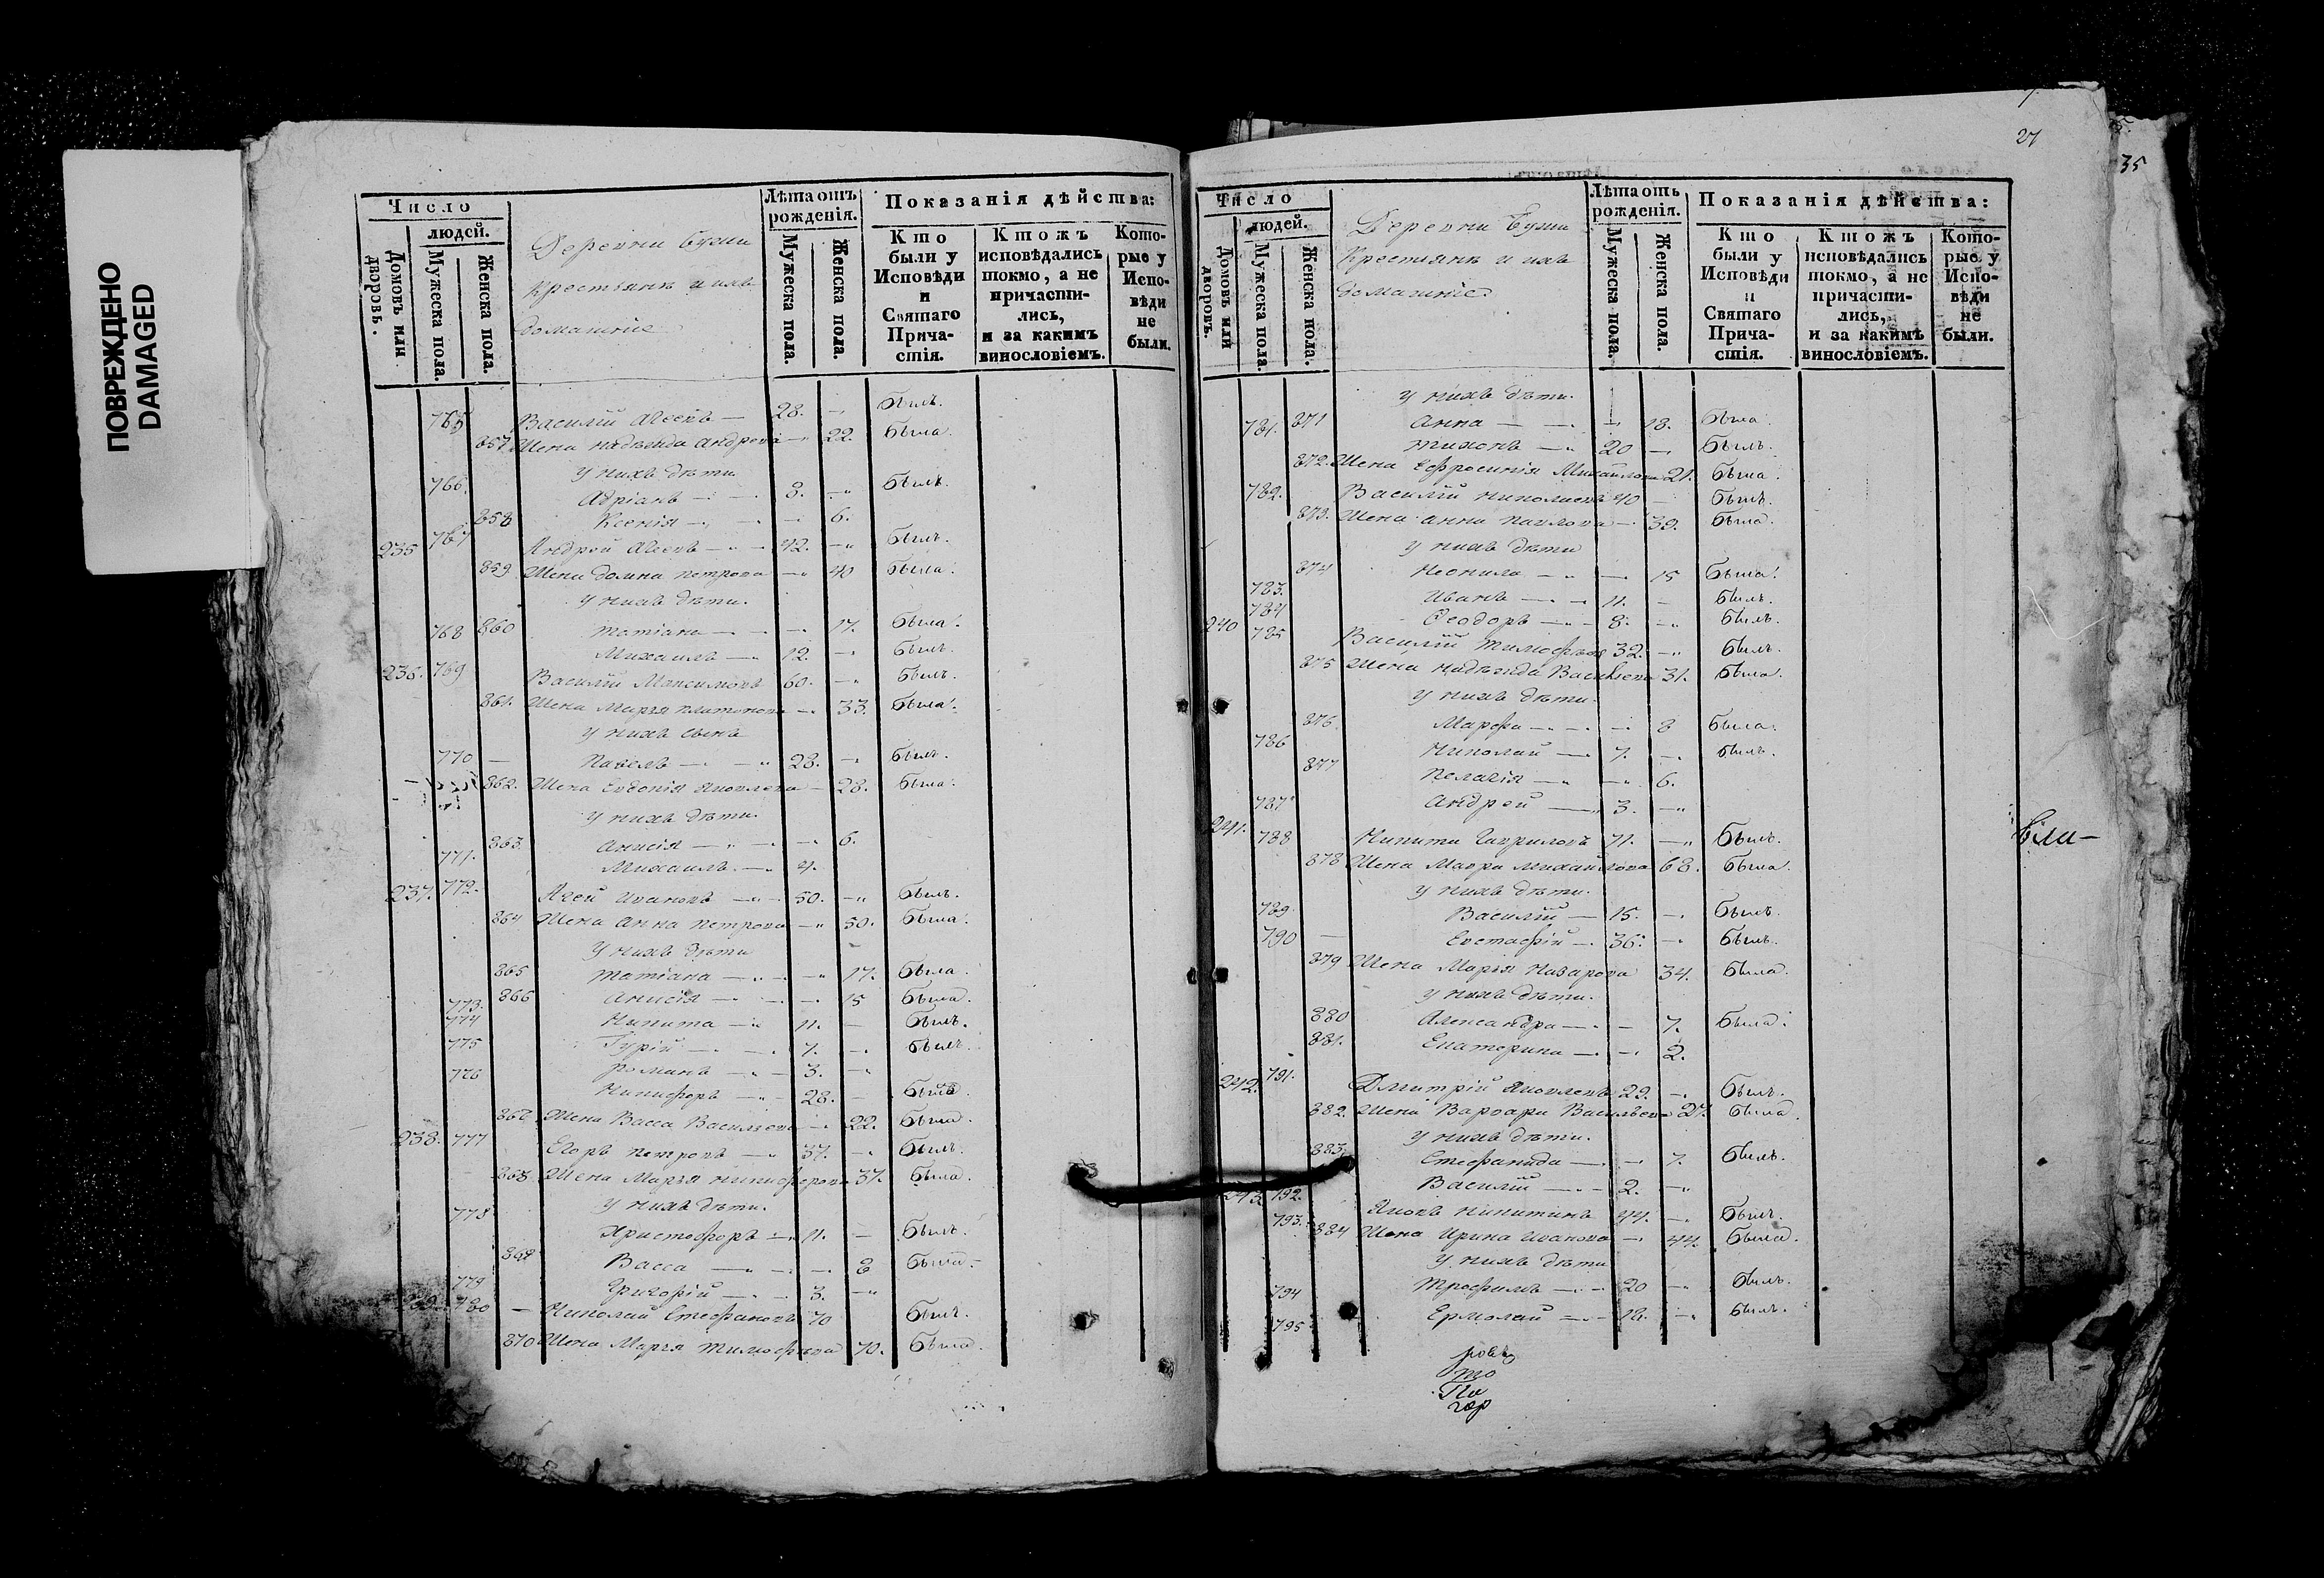 ПОВРЕЖДЕНО
DAMAGED
Число
людей.
Домовъ или дворовъ.
Мужеска пола.
Женска пола.
Деревни
крестьянъ и ихъ
домашніе
Лѣта отъ рожденія.
Мужеска пола.
Женска пола.
Показанія дѣйства:
Кто были у Исповѣди и Святаго Причастія.
Ктожъ исповѣдались токмо, а не причастились, и за какимъ винословіемъ.
Которые у Исповѣди не были.
765 Василій Агѣевъ — 28. — былъ.
857 Жена Надѣжда Андреева — 22. была.
у нихъ дѣти
766. Адріанъ — 8. — былъ.
858 Ксенія — 6.
235 767 Андрей Агѣевъ — 42. — былъ.
859 Жена Домна Петрова — 40 была.
у нихъ дѣти.
860 Татіана — 17. была.
768 Михаилъ — 12. — былъ.
236. 769 Василій Максимовъ 60. — былъ.
861. Жена Марья Платонова — 33. была.
у нихъ сынъ
770 — Павелъ — 28. — былъ.
862. Жена Евгенія Яковлева — 28. была.
у нихъ дѣти.
863. Анисія — 6.
771. Михаилъ — 4.
237. 772. Агей Ивановъ — 50. — былъ.
864 Жена Анна Петрова — 50. была.
у нихъ дѣти
865 Татіана — 17. была.
866 Анисія — 15 была.
773. Никита — 11. — былъ.
774 Гурій — 7. — былъ.
775 Романъ — 3. —
776 Никифоръ — 28. —
867 Жена Васса Васильева — 22. была.
238. 777 Егоръ Петровъ — 37. — былъ.
868. Жена Марья Никифорова 37. была.
у нихъ дѣти.
778 Христофоръ — 11. — былъ.
869 Васса — 8 была.
779 Григорій — 3. —
239. 780 — Николай Стефановъ 70 былъ.
870 Жена Марья Тимофѣева 70. была.
27
35
Число
людей.
Домовъ или дворовъ.
Мужеска пола.
Женска пола.
Деревни
Крестьянъ и ихъ
домашніе
Лѣта отъ рожденія.
Мужеска пола.
Женска пола.
Показанія дѣйства:
Кто были у Исповѣди и Святаго Причастія.
Ктожъ исповѣдались токмо, а не причастились, и за какимъ винословіемъ.
Которые у Исповѣди не были.
у нихъ дѣти.
871 Анна — 18. была.
781. Тихонъ — 20 — былъ.
872. Жена Ефросинія Михайлова 21. была.
782. Василій Николаевъ 40 — былъ.
873. Жена Анна Павлова — 39. была.
у нихъ дѣти
874 Неонила — 15 была.
783. Иванъ — 11. — былъ.
784 Ѳеодоръ — 8. — былъ.
240 785 Василій Тимофѣевъ 32. — былъ.
875 Жена Надѣжда Васильева 31. была.
у нихъ дѣти.
876. Марфа — 8 была.
786 Николай — 7. — былъ.
877 Пелагія — 6.
787 Андрей — 3. —
241. 788 Никита Гавриловъ 71. — былъ.
878 Жена Мавра Михайлова 68. была.
у нихъ дѣти.
789 Василій — 15. — былъ.
790 — Евстафій — 36. — былъ.
879 Жена Марія Назарова 34. была.
у нихъ дѣти.
880 Александра — 7. была.
881. Екатерина — 2.
242. 791. Дмитрій Яковлевъ 29. — былъ.
882. Жена Варвара Васильева 27. была.
у нихъ дѣти.
883. Стефанида — 7. былъ.
792. Василій — 2. —
243. 793. Яковъ Никитинъ 44. — былъ.
884 Жена Ирина Иванова — 44. была.
у нихъ дѣти
794 Трофимъ — 20 — былъ.
795 Ермолай — 18. — былъ.
то
По